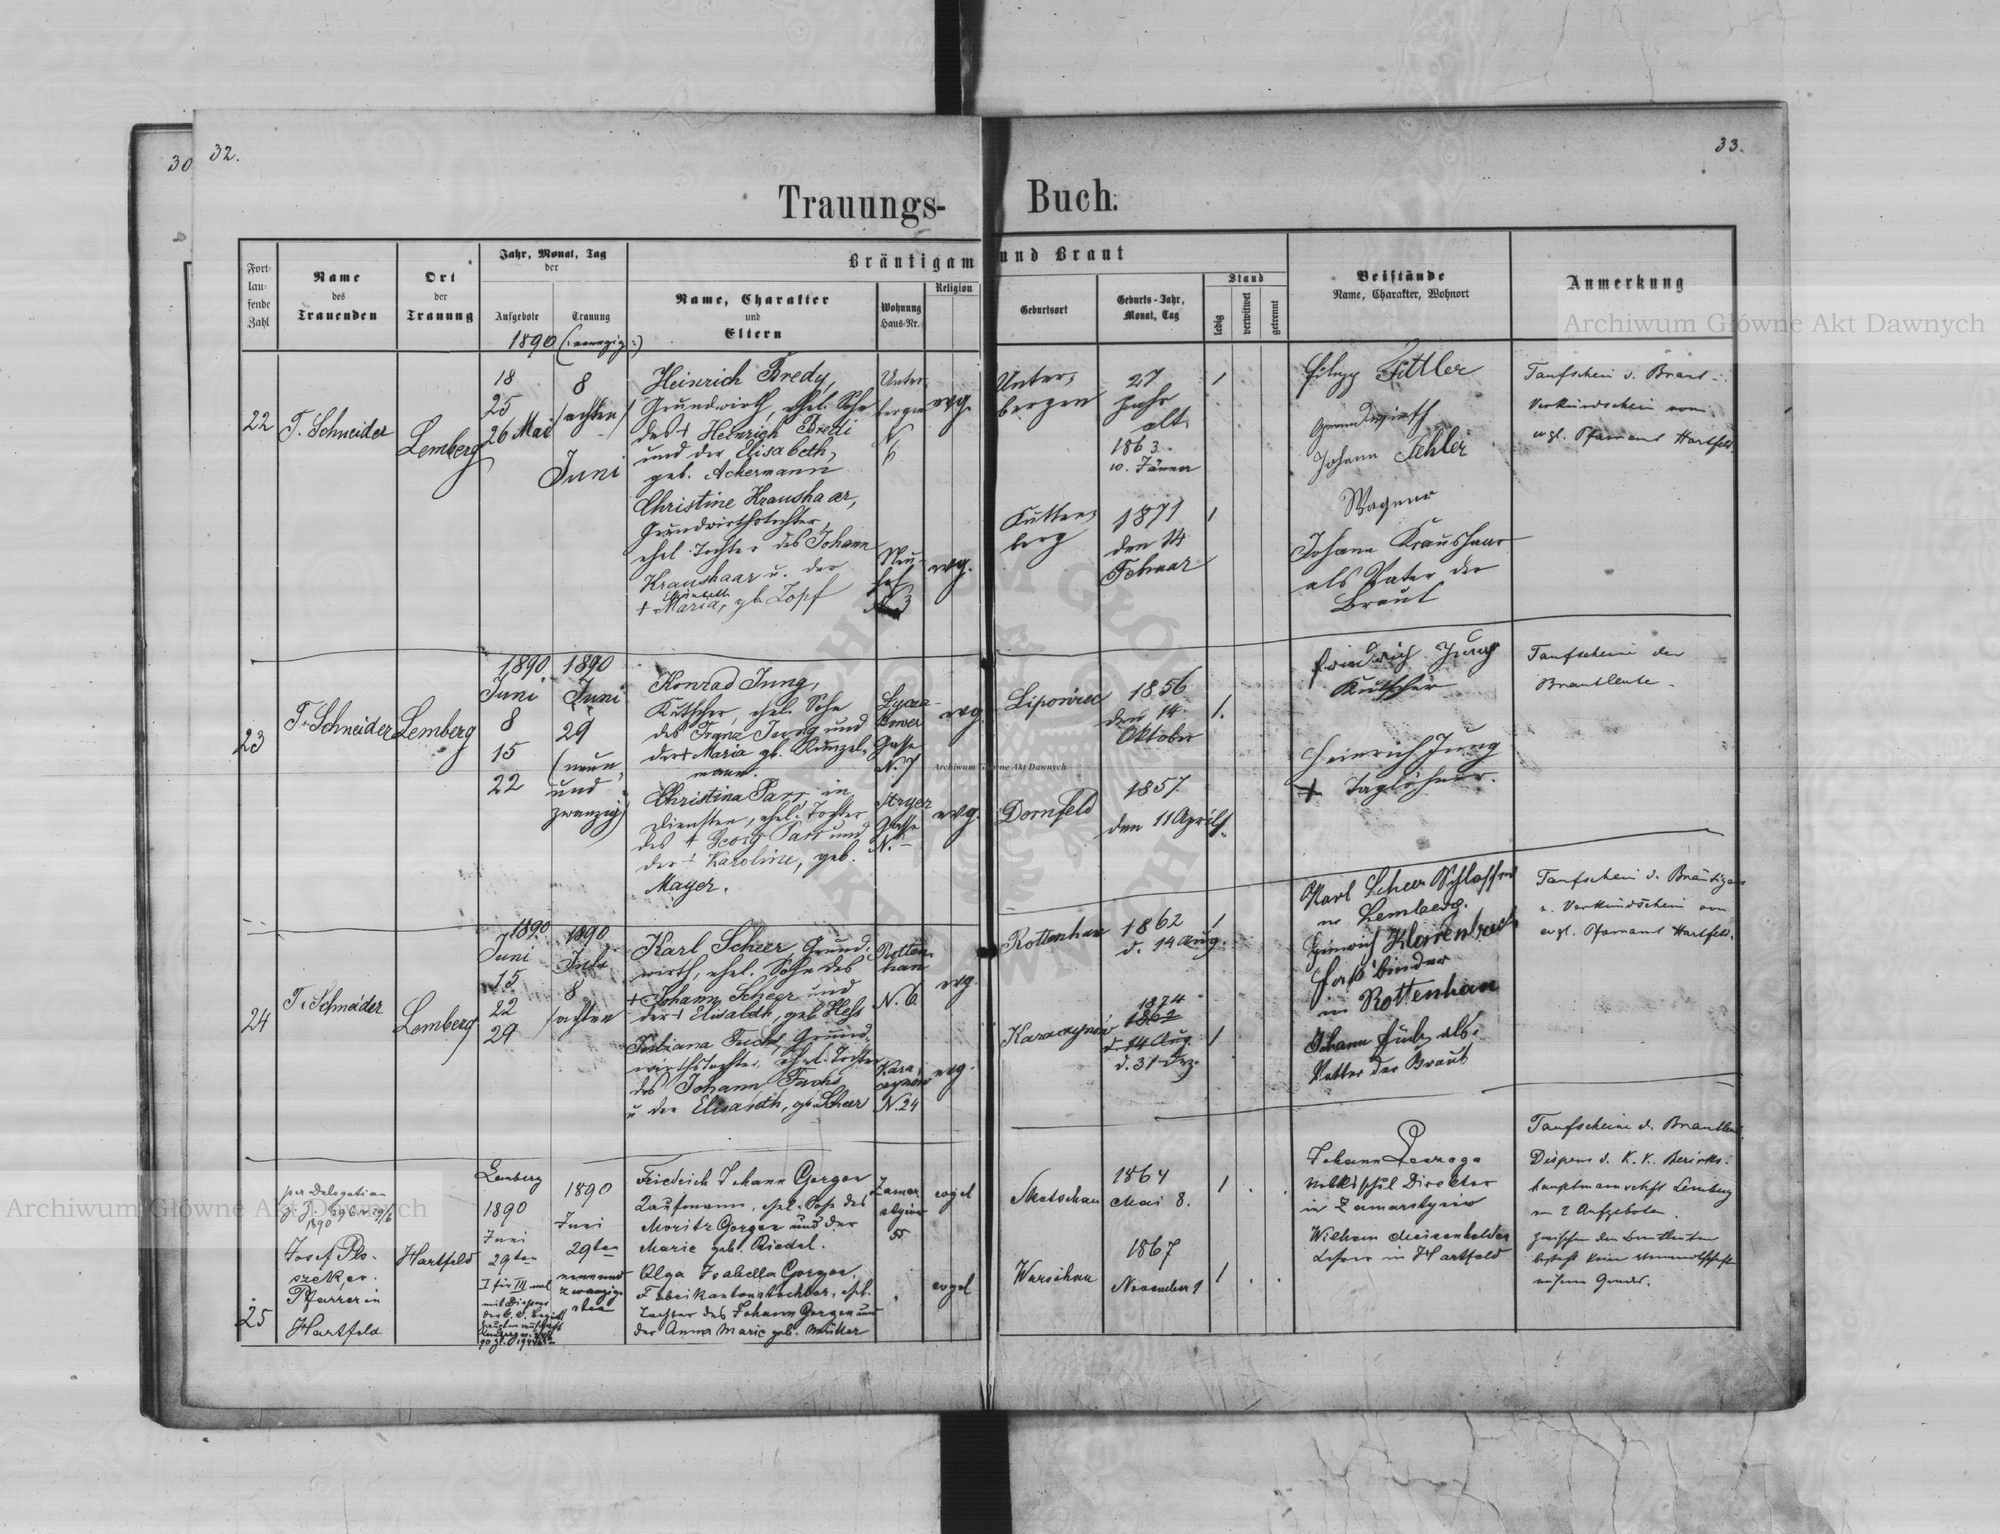 30
32.
33.
Trauungs- Buch.
Fort-
lau-
fende
Zahl
Name
des
Trauenden
Ort
der
Trauung
Jahr, Monat, Tag
der
Aufgebote
Trauung
Bräutigam und Braut
Name, Charakter
und
Eltern
Wohnung
Haus-Nr.
Religion
Geburtsort
Geburts-Jahr,
Monat, Tag
Stand
ledig
verwitwet
getrennt
Beistände
Name, Charakter, Wohnort
Anmerkung
1890
22
T. Schneider
Lemberg
18
25
26 Mai
8
(achten)
Juni
Heinrich Bredy,
Grundwirth, ehel. Sohn
des + Heinrich Bredi
und der Elisabeth,
geb. Ackermann
Unter-
bergen
N
6
evg.
Unter-
bergen
27
Jahr
alt.
1863
10. Jänner
1
Christine Kraushaar,
Grundwirthstochter,
ehel. Tochter des Johann
Kraushaar u. der
+ Maria, gb. Zopf
Neu-
hof
N 3
evg.
Kutten-
berg
1871
den 14
Februar
1
Filipp Fittler
Grundwirth
Johann
Wagner
Johann Kraushaar
als Vater der
Braut
Taufschein d. Braut
Verkündschein vom
evgl. Pfarramt Hartfeld.
23
T. Schneider
Lemberg
1890
Juni
8
15
22
1890
Juni
29
(neun
und
zwanzig)
Konrad Jung,
Kutscher, ehel. Sohn
des Franz Jung und
der + Maria gb. Künzel-
mann.
Gasse
N. 7
evg.
1856
den 14.
Oktober
1.
Christina Parr in
Diensten, ehel. Tochter
des + Georg Parr und
der + Karoline, geb.
Mayer.
Stryer
Gasse
N. -
evg.
Dornfeld
1857
den 11 April
1.
Friedrich Jung
Kutscher
Heinrich Jung
+ Taglöhner.
Taufscheine der
Brautleute
24
T. Schneider
Lemberg
1890
Juni
15
22
29
1890
Juli
8
(achten
Karl Scherr, Grund-
wirth, ehel. Sohn des
+ Johann Scheer und
der + Elisabeth, geb. Hess
Rotten-
han
N. 6
evg.
Rottenhan
1862
d. 14 Aug.
1
Juliana Fuchs, Grund-
wirthstochter, ehel. Tochter
des Johann Fuchs
u. der Elisabeth, gb. Scheer
Kara-
czynów
N. 24
evg.
Karaczynów
1874
1862
d. 14 Aug
d. 31 Dez.
1
Karl Scheer Schlosser
in Lemberg.
Heinrich
Fassbinder
in Rottenhan
Johann Fuchs als
Vatter der Braut
Taufschein d. Bräutigams
u. Verkündschein vom
evgl. Pfarramt Hartfeld.
25
per Delegation
1890
Josef Plo-
szek,ev.
Pfarrer in
Hartfeld
Hartfeld
Lemberg
1890
Juni
29ten
I für III mal
mit Dispens
1890
Juni
29ten
neunund
zwanzig-
sten
Friedrich Johann Gorgon
Kaufmann, ehel. Sohn des
Moritz Gorgon und der
Marie geb. Riedel.
Zamar
stynów
evgel
Skotschau
1864
Mai 8.
1
Olga Isabella Gorgon,
Fabrikantenstochter, ehel.
Tochter des Johann Gorgon und
der Anna Marie geb. Müller
evgel
Warschau
1867
November 1
1
Johann
Volksschul Direktor
in Zamarstynów
Wilhelm
Lehrer in Hartfeld
Taufscheine d. Brautleute
Dispens d. K. K. Bezirks-
hauptmannschaft Lemberg
von 2 Aufgeboten.
Zwischen den Brautleuten
besteht kein
Archiwum Główne Akt Dawnych
Archiwum Główne Akt Dawnych
Archiwum Główne Akt Dawnych